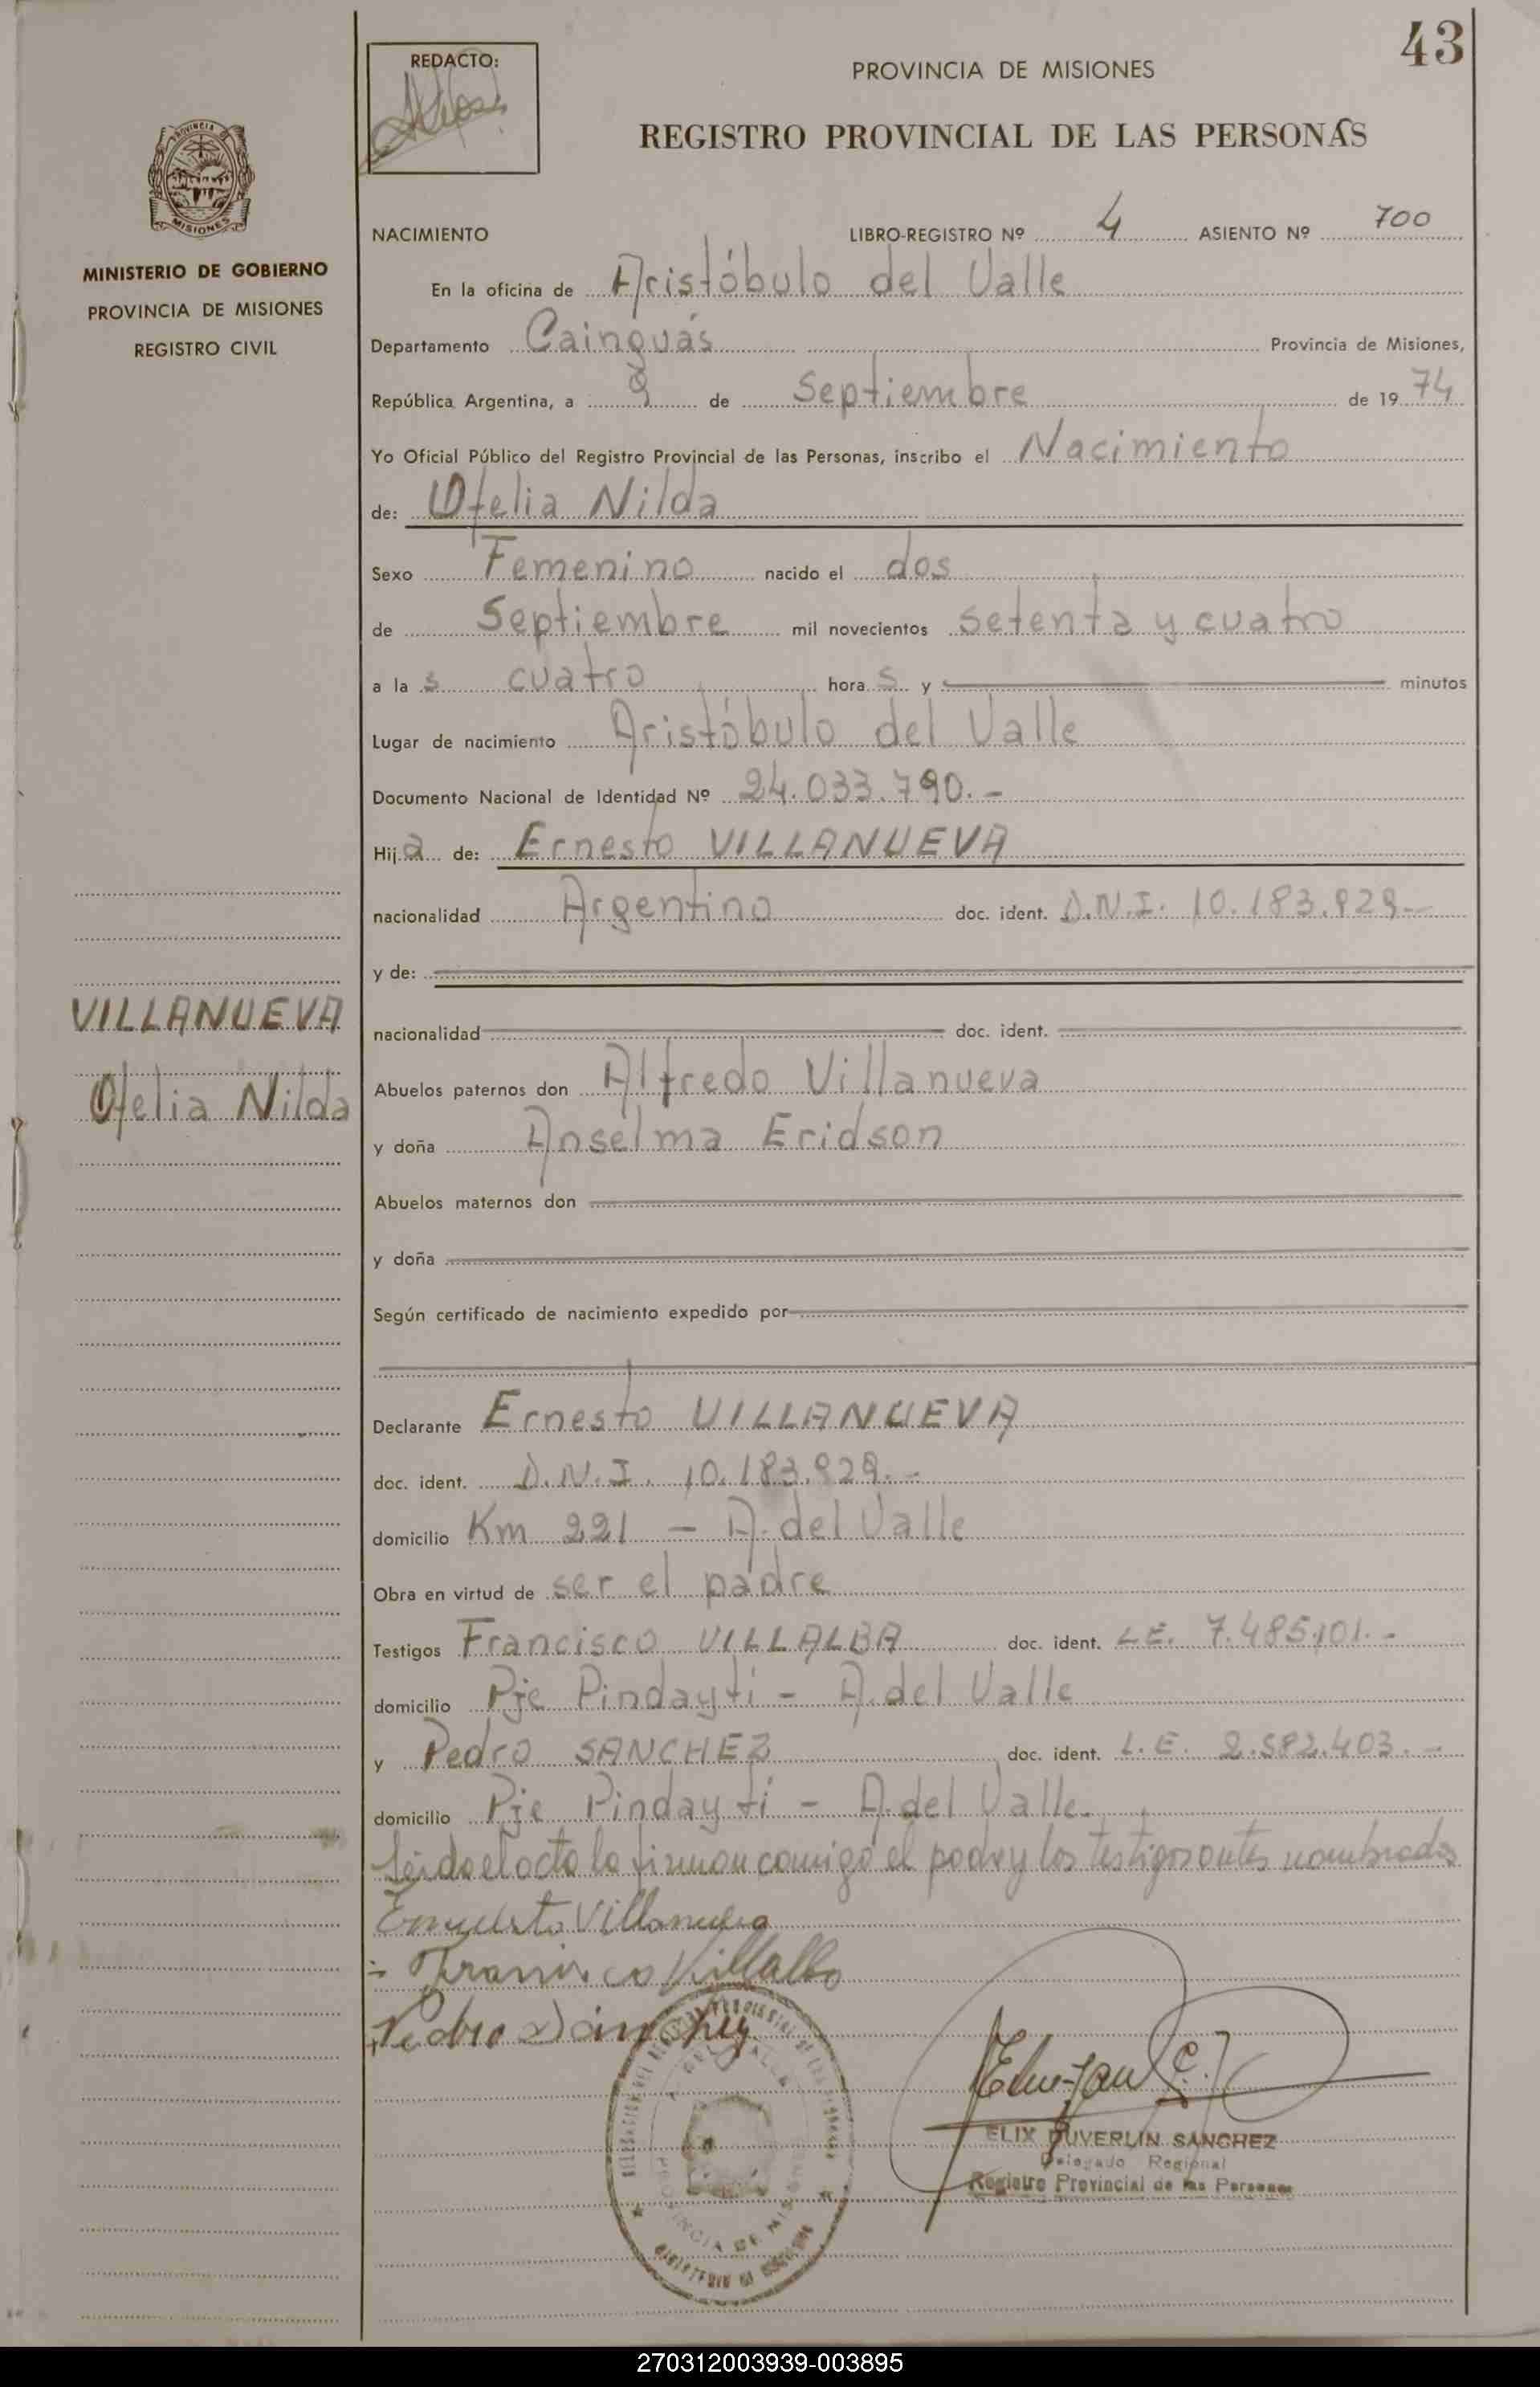 43
REDACTO:
PROVINCIA DE MISIONES
REGISTRO PROVINCIAL DE LAS PERSONAS
PROVINCIA DE
MISIONES
MINISTERIO DE GOBIERNO
PROVINCIA DE MISIONES
REGISTRO CIVIL
NACIMIENTO LIBRO-REGISTRO Nº 4 ASIENTO Nº 700
En la oficina de Aristóbulo del Valle
Departamento Cainguás Provincia de Misiones,
República Argentina, a 9 de Septiembre de 19 74
Yo Oficial Público del Registro Provincial de las Personas, inscribo el Nacimiento
de: Ofelia Nilda
Sexo Femenino nacido el dos
de Septiembre mil novecientos setenta y cuatro
a la s cuatro hora s y minutos
Lugar de nacimiento Aristóbulo del Valle
Documento Nacional de Identidad Nº 24.033.790.-
Hij a de: Ernesto VILLANUEVA
nacionalidad Argentino doc. ident. D.N.I. 10.183.929.-
y de:
VILLANUEVA
Ofelia Nilda
nacionalidad doc. ident.
Abuelos paternos don Alfredo Villanueva
y doña Anselma Eridson
Abuelos maternos don
y doña
Según certificado de nacimiento expedido por
Declarante Ernesto VILLANUEVA
doc. ident. D.N.I. 10.183.929.-
domicilio Km 221 - A. del Valle
Obra en virtud de ser el padre
Testigos Francisco VILLALBA doc. ident. L.E. 7.485.101.-
domicilio Pje Pindaytí - A. del Valle
y Pedro SANCHEZ doc. ident. L.E. 2.582.403.-
domicilio Pje Pindaytí - A. del Valle.
Leído el acta la firman conmigo el padre y los testigos antes nombrados
Ernesto Villanueva
Francisco Villalba
Pedro Sánchez
ELIX DUVERLIN SANCHEZ
Delegado Regional
Registro Provincial de las Personas
PROVINCIA DE MISIONES
270312003939-003895